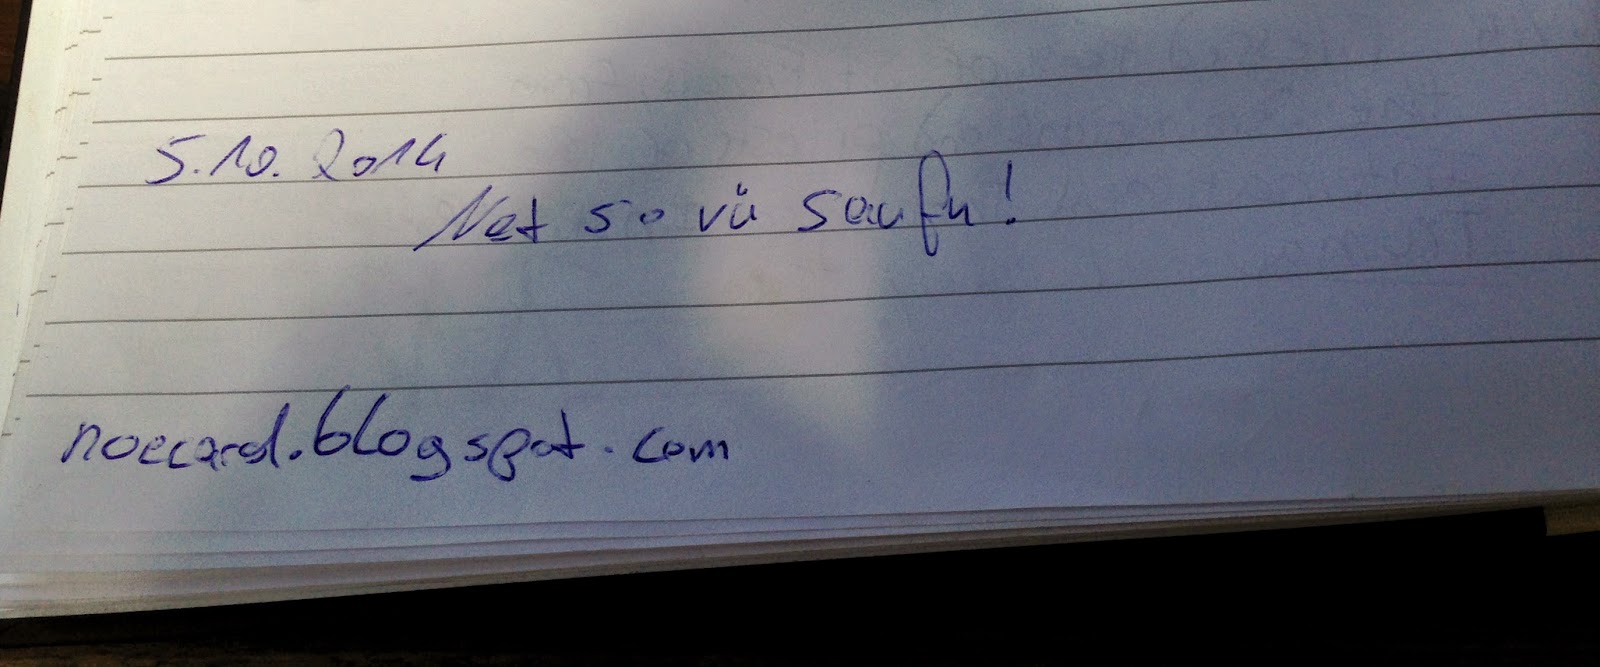 5.10.2014
Net so vü saufn!
noecard.blogspot.com